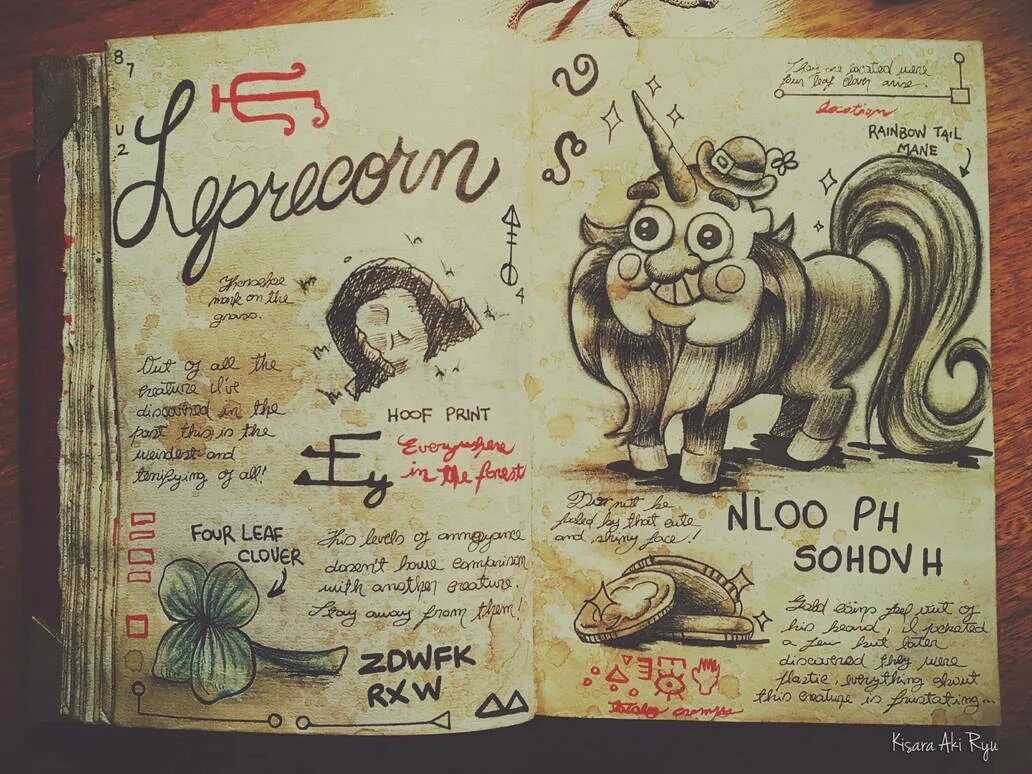 87
U
2
Leprecorn
Horseshoe
mark on the
grass.
4
Out of all the
creature I've
discovered in the
past this is the
weirdest and
terrifying of all!
HOOF PRINT
Everywhere
in the forest
FOUR LEAF
CLOVER
This levels of annoyance
doesn't have comparison
with another creature.
Stay away from them!
ZDWFK
RXW
They are located were
four leaf clover arise.
location
RAINBOW TAIL
MANE
Do not be
fooled by that cute
and shiny face!
NLOO PH
SOHDVH
Gold coins fell out of
his beard, I pocketed
a few but later
discovered they were
plastic, everything about
this creature is frustating...
Kisara Aki Ryu